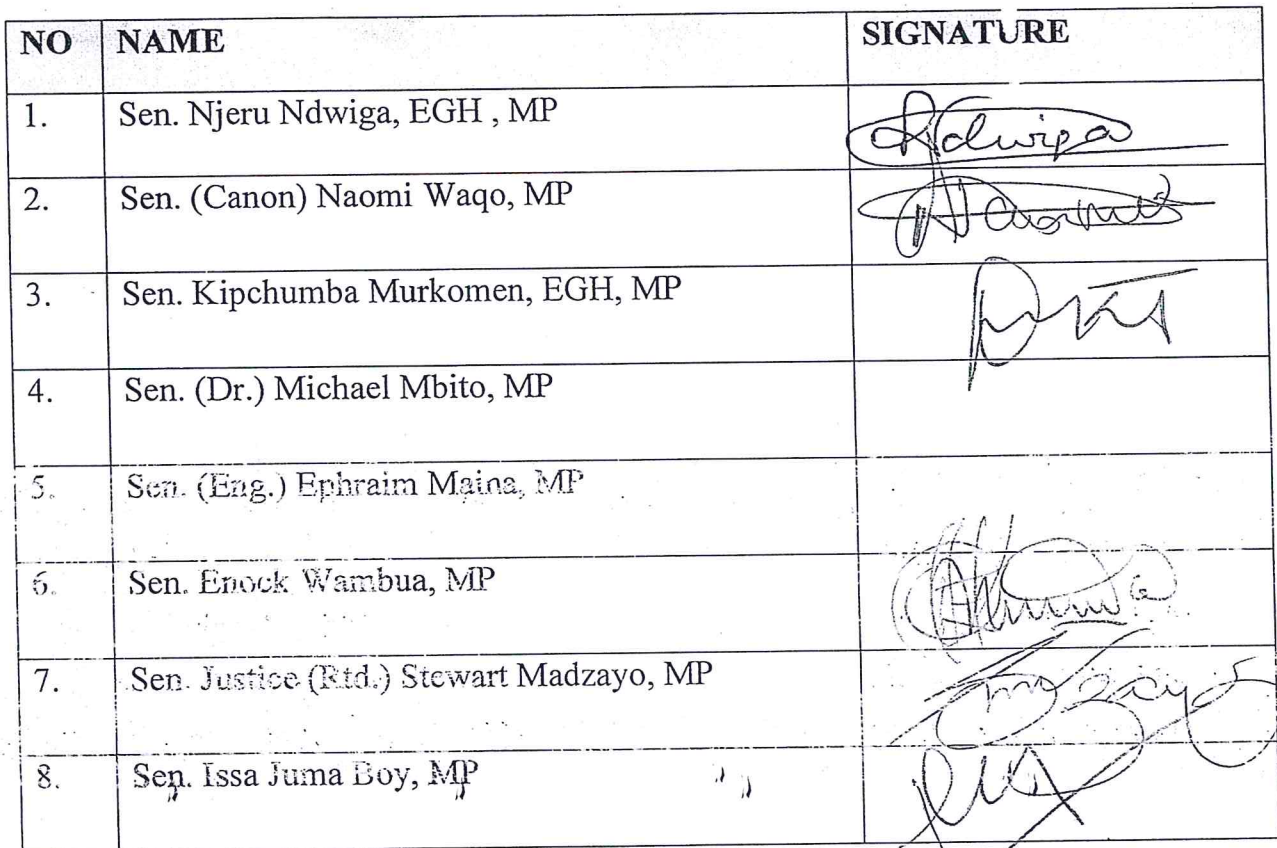 NO NAME SIGNATURE
1. Sen. Njeru Ndwiga, EGH , MP Ndwiga
2. Sen. (Canon) Naomi Waqo, MP Naomi
3. Sen. Kipchumba Murkomen, EGH, MP
4. Sen. (Dr.) Michael Mbito, MP
5. Sen. (Eng.) Ephraim Maina, MP
6. Sen. Enock Wambua, MP
7. Sen. Justice (Rtd.) Stewart Madzayo, MP
8. Sen. Issa Juma Boy, MP